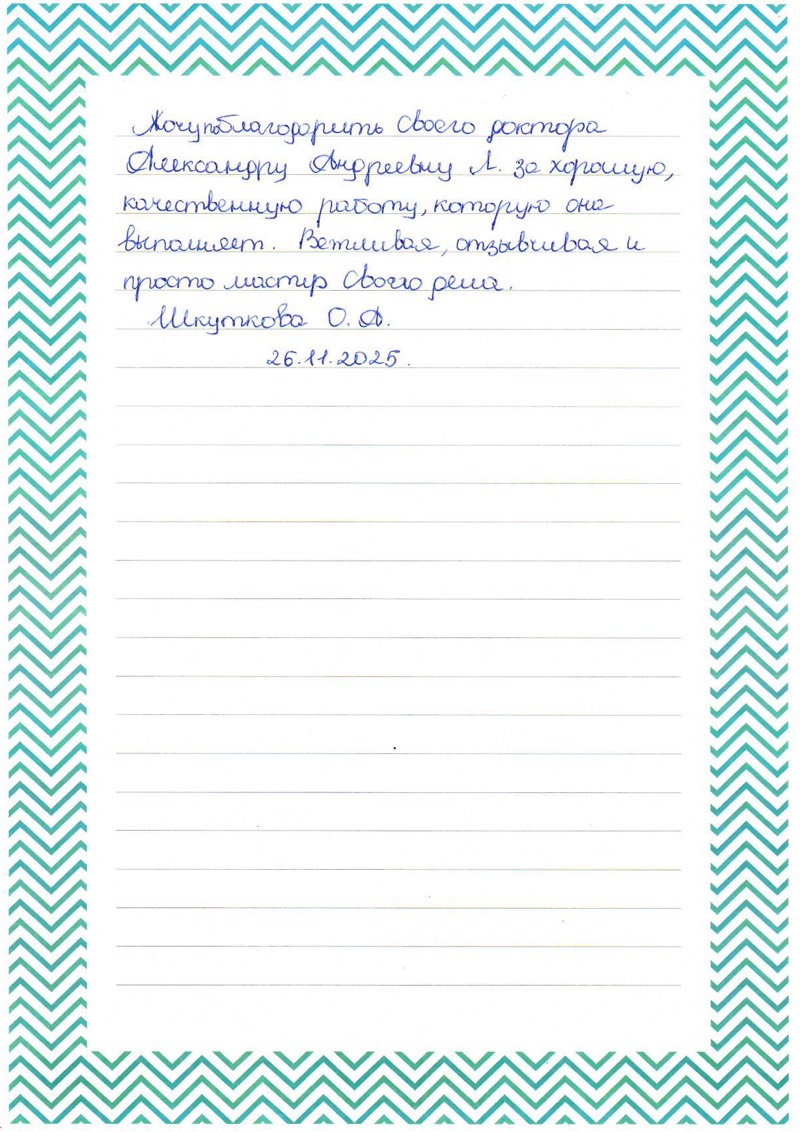 Хочу поблагодарить своего доктора
Александру Андреевну Л. за хорошую,
качественную работу, которую она
выполняет. Ветливая, отзывчивая и
просто мастер своего дела.
Шкуткова О. А.
26.11.2025.